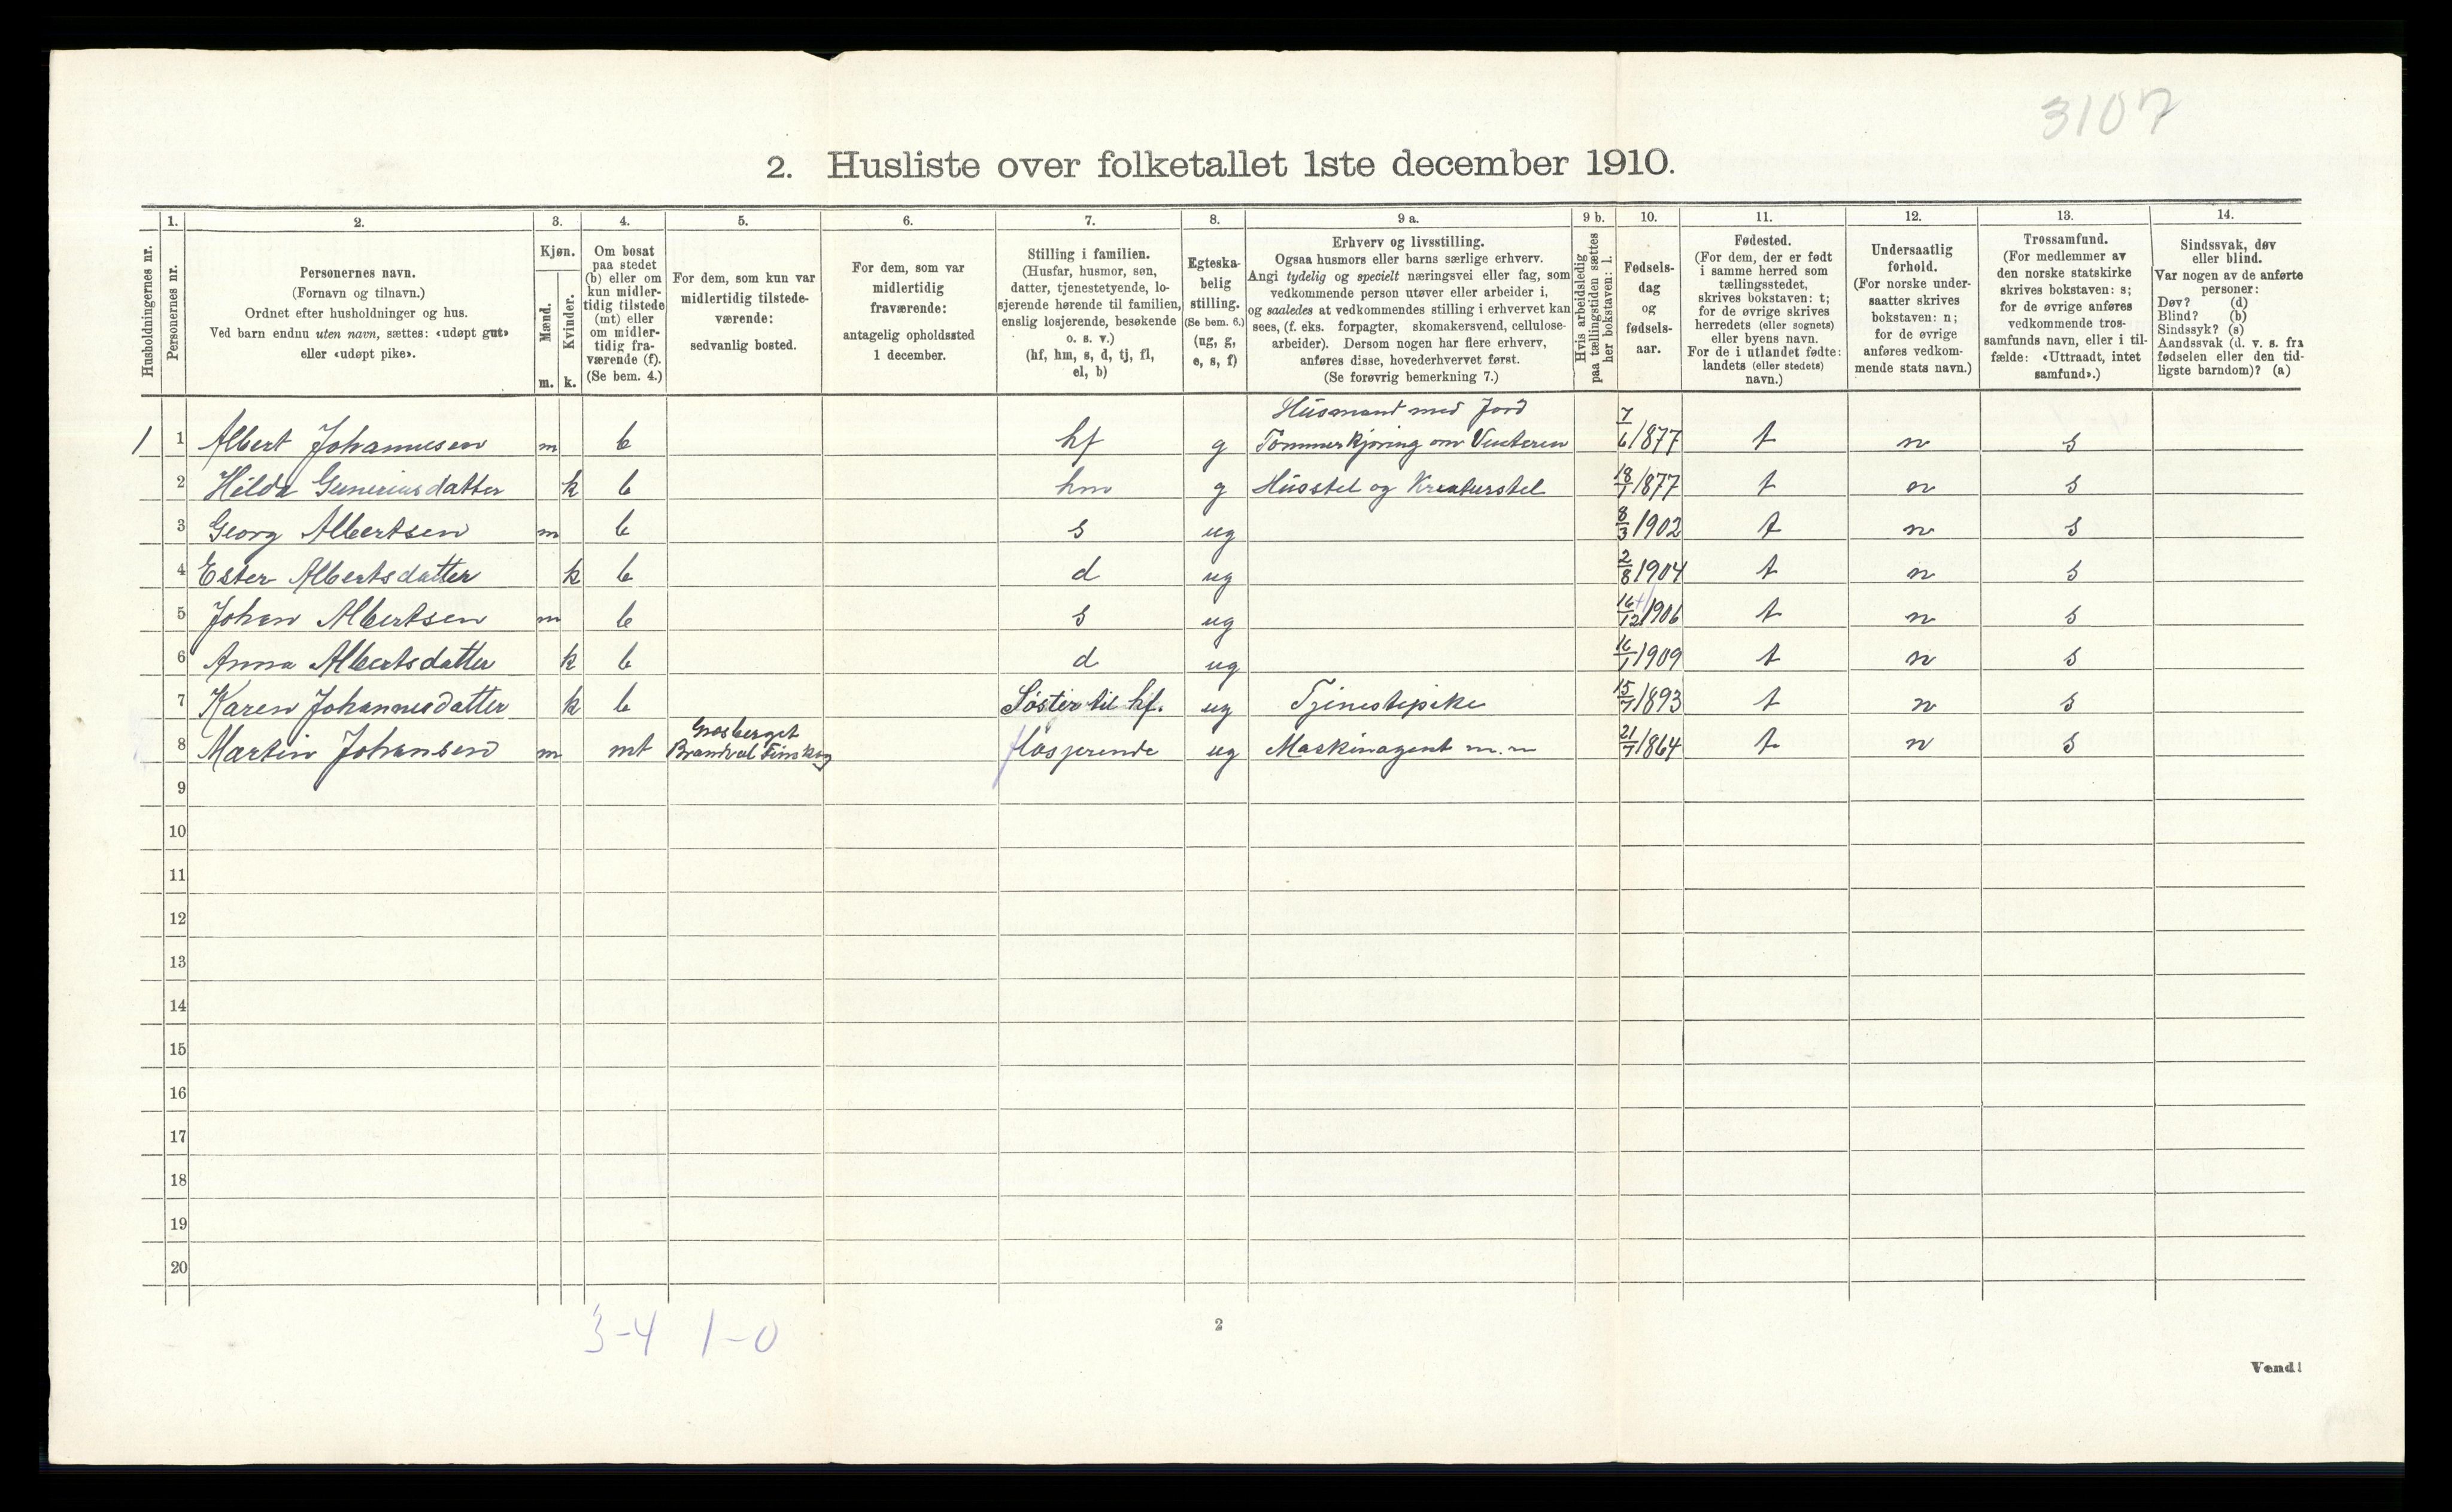 3107
2. Husliste over folketallet 1ste december 1910.
Husholdningernes nr.
1.
Personernes nr.
2.
Personernes navn.
(Fornavn og tilnavn.)
Ordnet efter husholdninger og hus.
Ved barn endnu uten navn, sættes: «udøpt gut»
eller «udøpt pike».
3.
Kjøn.
Mænd.
m.
Kvinder.
k.
4.
Om bosat
paa stedet
(b) eller om
kun midler-
tidig tilstede
(mt) eller
om midler-
tidig fra-
værende (f).
(Se bem. 4.)
5.
For dem, som kun var
midlertidig tilstede-
værende:
sedvanlig bosted.
6.
For dem, som var
midlertidig
fraværende:
antagelig opholdssted
1 december.
7.
Stilling i familien.
(Husfar, husmor, søn,
datter, tjenestetyende, lo-
sjerende hørende til familien,
enslig losjerende, besøkende
o. s. v.)
(hf, hm, s, d, tj, fl,
el, b)
8.
Egteska-
belig
stilling.
(Se bem. 6.)
(ug, g,
e, s, f)
9 a.
Erhverv og livsstilling.
Ogsaa husmors eller barns særlige erhverv.
Angi tydelig og specielt næringsvei eller fag, som
vedkommende person utøver eller arbeider i,
og saaledes at vedkommendes stilling i erhvervet kan
sees, (f. eks. forpagter, skomakersvend, cellulose-
arbeider). Dersom nogen har flere erhverv,
anføres disse, hovederhvervet først.
(Se forøvrig bemerkning 7.)
9 b.
Hvis arbeidsledig
paa tællingstiden sættes
her bokstaven: l.
10.
Fødsels-
dag
og
fødsels-
aar.
11.
Fødested.
(For dem, der er født
i samme herred som
tællingsstedet,
skrives bokstaven: t;
for de øvrige skrives
herredets (eller sognets)
eller byens navn.
For de i utlandet fødte:
landets (eller stedets)
navn.)
12.
Undersaatlig
forhold.
(For norske under-
saatter skrives
bokstaven: n;
for de øvrige
anføres vedkom-
mende stats navn.)
13.
Trossamfund.
(For medlemmer av
den norske statskirke
skrives bokstaven: s;
for de øvrige anføres
vedkommende tros-
samfunds navn, eller i til-
fælde: «Uttraadt, intet
samfund».)
14.
Sindssvak, døv
eller blind.
Var nogen av de anførte
personer:
Døv? (d)
Blind? (b)
Sindssyk? (s)
Aandssvak (d. v. s. fra
fødselen eller den tid-
ligste barndom)? (a)
Husmand med Jord
1 1 Albert Johannesen m b hf g Tømmerkjøring om Vinteren 7/6 1877 t n s
2 Hilda Guneriusdatter k b hm g Husstel og Kreaturstel 18/1 1877 t n s
3 Georg Albertsen m b s ug 8/3 1902 t n s
4 Ester Albertsdatter k b d ug 2/8 1904 t n s
5 Johan Albertsen m b s ug 16/12 1906 t n s
6 Anna Albertsdatter k b d ug 16/1 1909 t n s
7 Karen Johannesdatter k b Søster til hf. ug Tjenestepike 15/7 1893 t n s
Grasberget
8 Martin Johansen m mt Brandval Finskog fløsjerende ug Maskinagent m.m 21/7 1864 t n s
9
10
11
12
13
14
15
16
17
18
19
20
3-4 1-0
2
Vend!